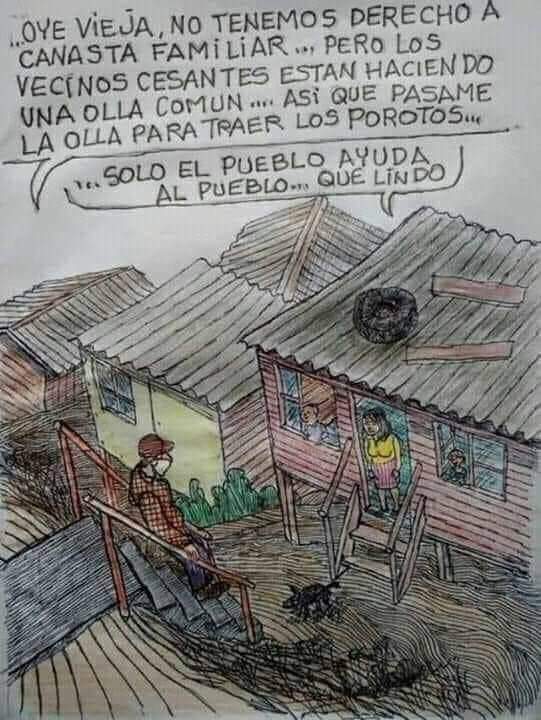 ...OYE VIEJA, NO TENEMOS DERECHO A
CANASTA FAMILIAR... PERO LOS
VECINOS CESANTES ESTAN HACIENDO
UNA OLLA COMUN.... ASI QUE PASAME
LA OLLA PARA TRAER LOS POROTOS...
...SOLO EL PUEBLO AYUDA
AL PUEBLO... QUE LINDO